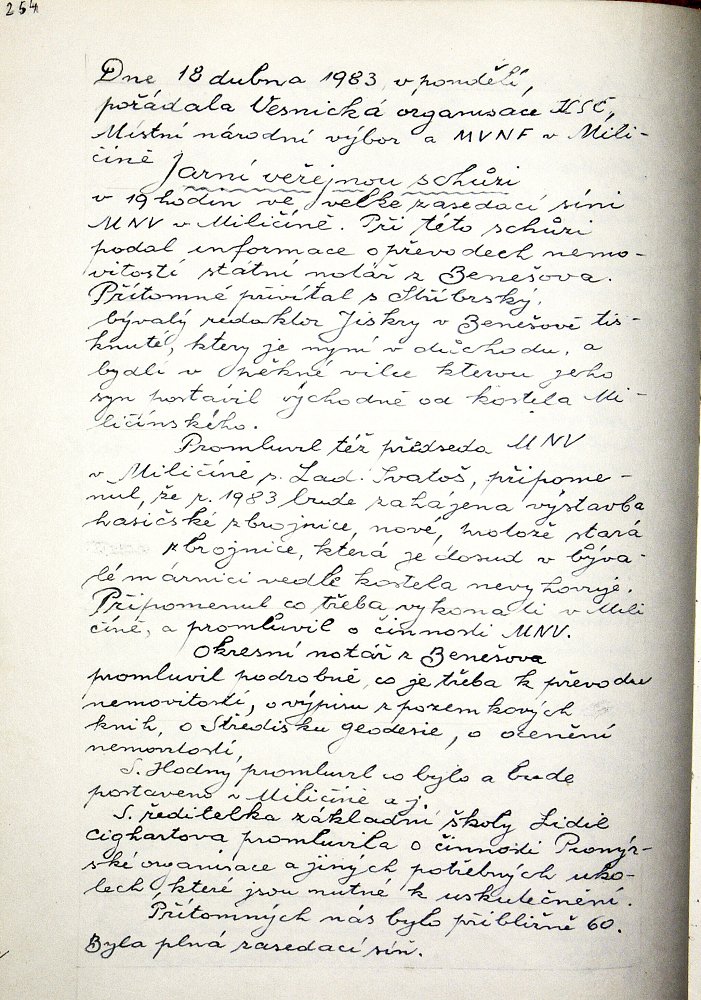 254
Dne 18 dubna 1983, v pondělí,
pořádala Vesnická organisace KSČ,
Místní národní výbor a MVNF v Mili-
číně
Jarní veřejnou schůzi
v 19 hodin ve velké zasedací síni
MNV v Miličíně. Při této schůzi
podal informace o převodech nemo-
vitostí státní notář z Benešova.
Přítomné přivítal s Stříbrský,
bývalý redaktor Jiskry v Benešově tis-
knuté, který je nyní v důchodu, a
bydlí v pěkné vilce kterou jeho
syn postavil východně od kostela Mi-
ličínského.
Promluvil též předseda MNV
v Miličíně s. Lad. Svatoš, připome-
nul, že r. 1983 bude zahájena výstavba
hasičské zbrojnice, nové, protože stará
zbrojnice, která je dosud v býva-
lé márnici vedle kostela nevyhovuje.
Připomenul co třeba vykonati v Mili
číně, a promluvil o činnosti MNV.
Okresní notář z Benešova
promluvil podrobně, co je třeba k převodu
nemovitostí, o výpisu z pozemkových
knih, o Středisku geodesie, o ocenění
nemovitostí,
S. Hodný promluvil co bylo a bude
postaveno v Miličíně a j.
S. ředitelka základní školy Lidie
Cighartova promluvila o činnosti Pionýr-
ské organisace a jiných potřebných úko-
lech, které jsou nutné k uskutečnění.
Přítomných nás bylo přibližně 60.
Byla plná zasedací síň.